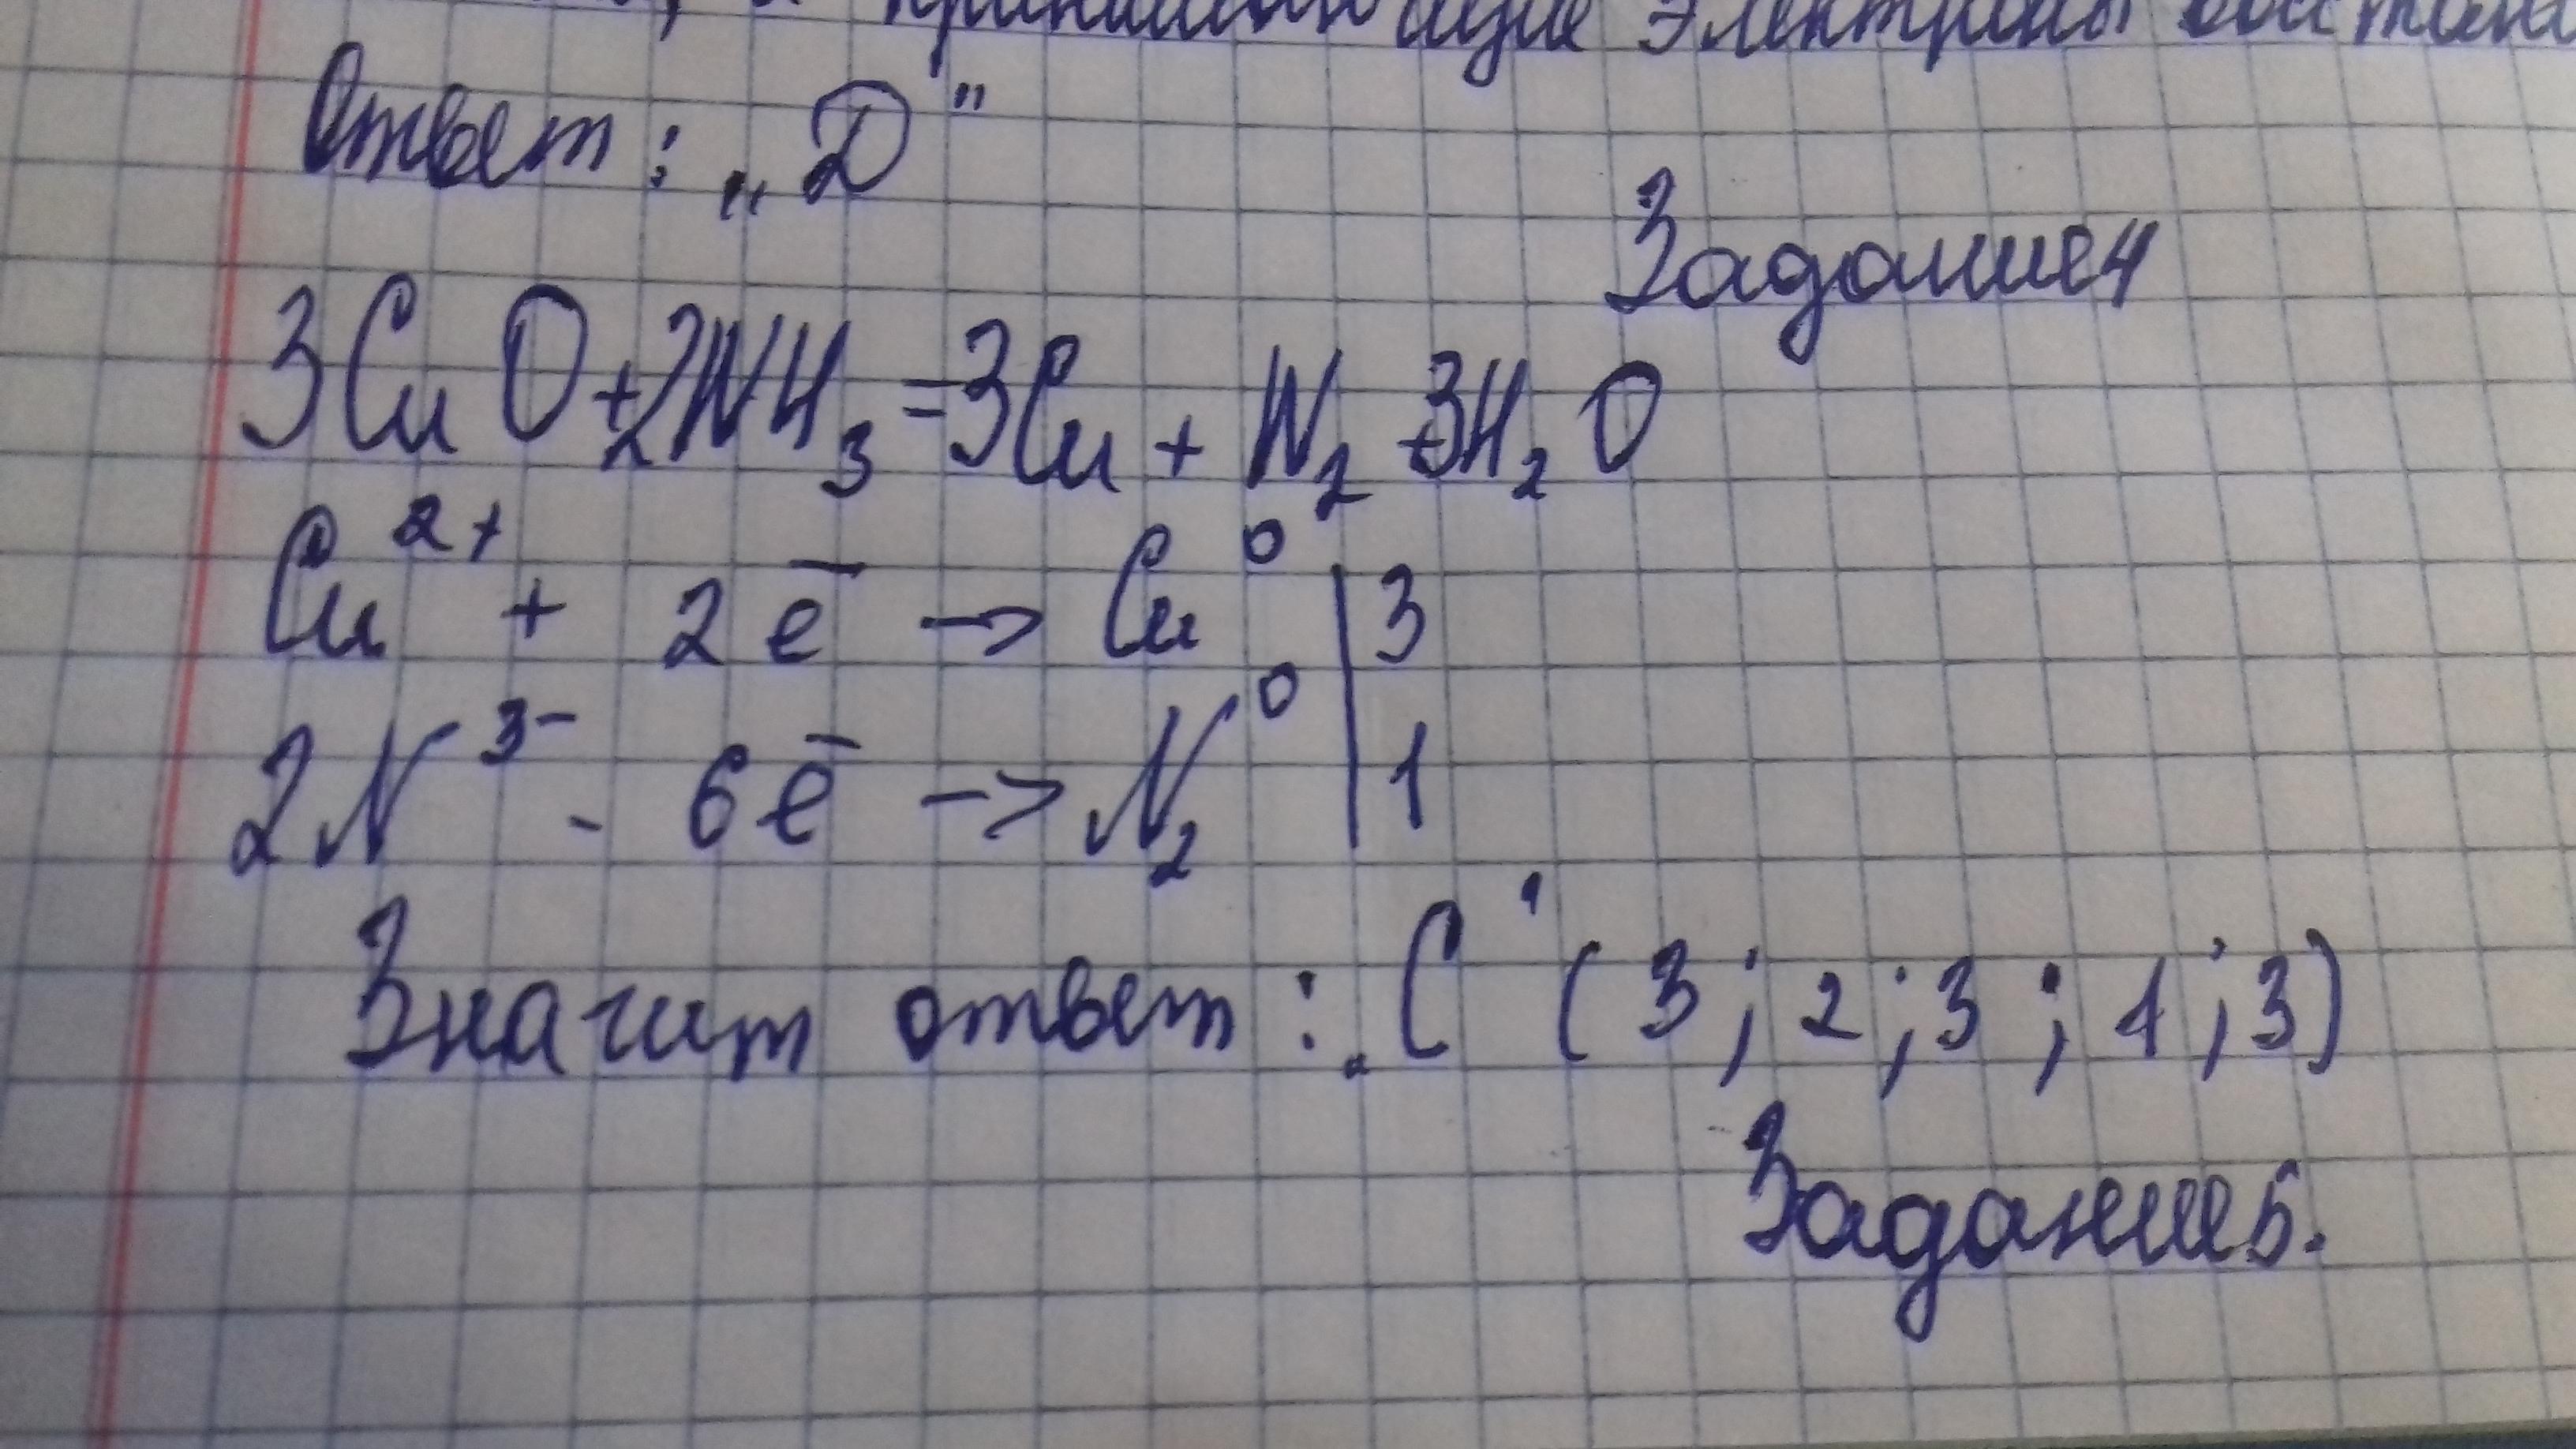 принимающие электроны
Ответ: „D”
Задание4
3CuO+2NH₃=3Cu + N₂+3H₂O
Cu²⁺ + 2e⁻ -> Cu⁰ | 3
2N³⁻ - 6e⁻ -> N₂⁰ | 1
Значит ответ: „C' (3; 2; 3; 1; 3)
Задание5.